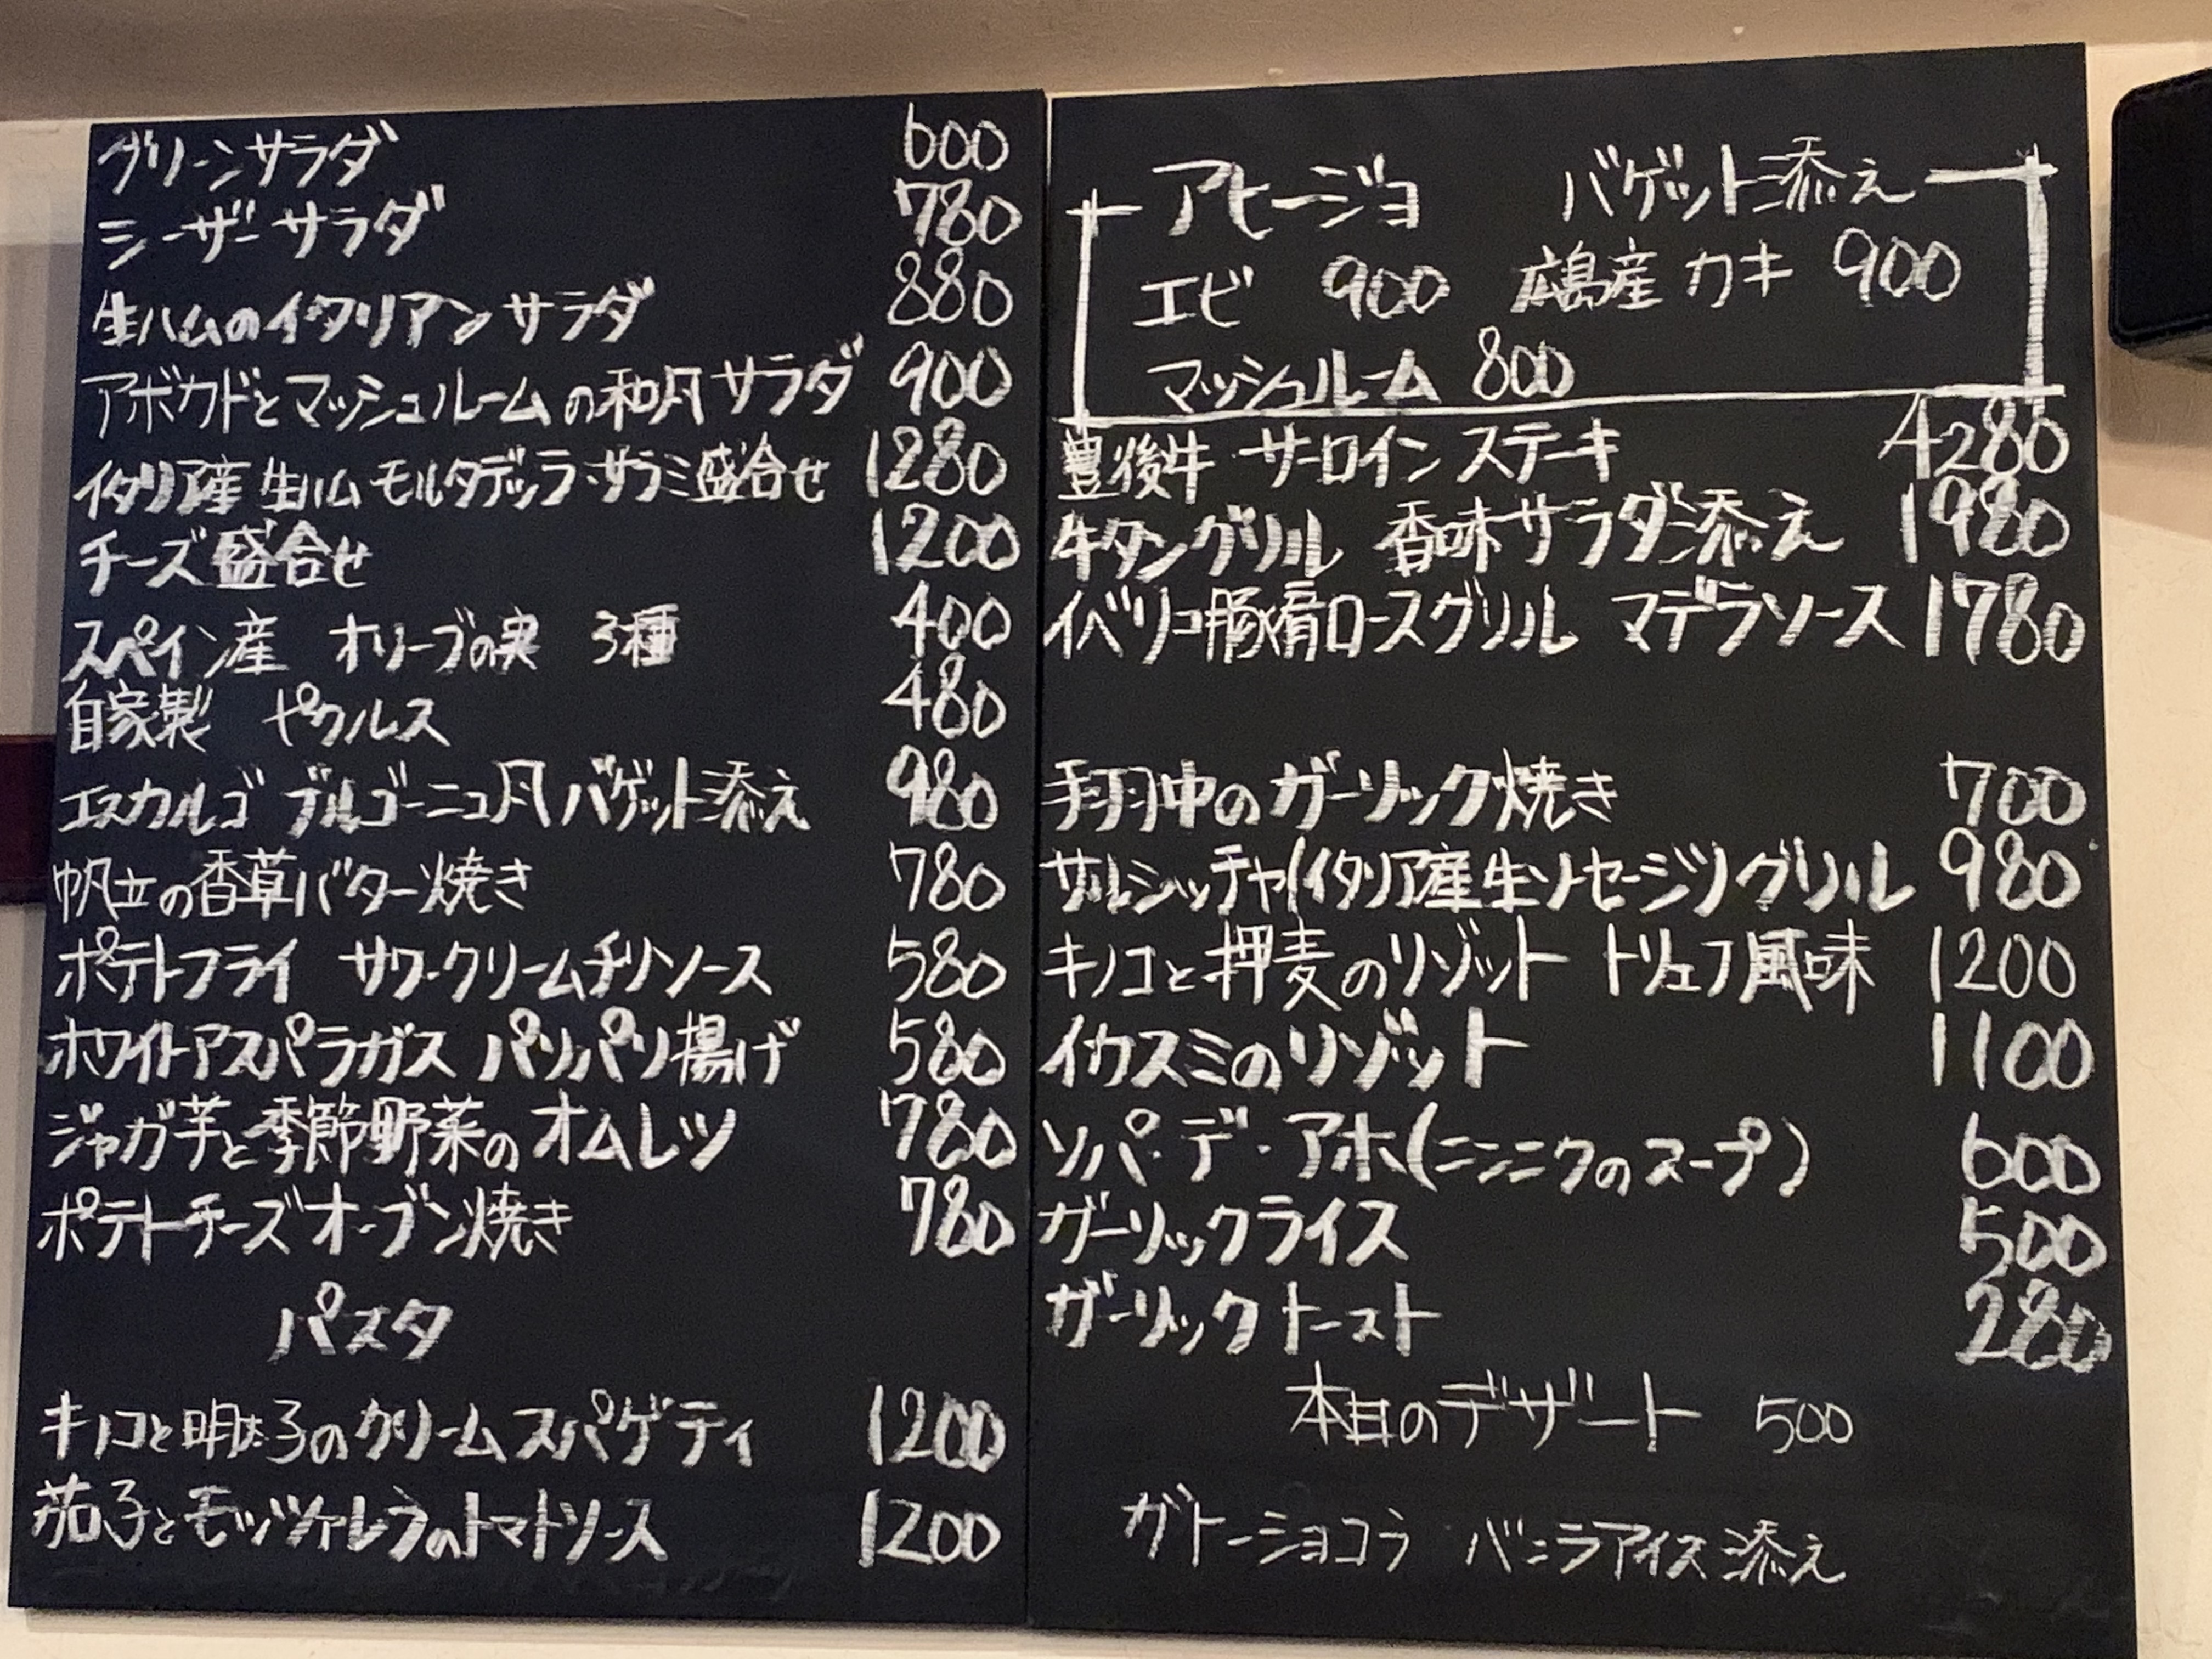 グリーンサラダ 600
シーザーサラダ 780
生ハムのイタリアンサラダ 880
アボカドとマッシュルームの和風サラダ 900
イタリア産 生ハム モルタデッラ・サラミ盛合せ 1280
チーズ盛合せ 1200
スペイン産 オリーブの実 3種 400
自家製 ピクルス 480
エスカルゴ ブルゴーニュ風 バゲット添え 980
帆立の香草バター焼き 780
ポテトフライ サワークリームチリソース 580
ホワイトアスパラガス パリパリ揚げ 580
ジャガ芋と季節野菜のオムレツ 780
ポテトチーズオーブン焼き 780
パスタ
キノコと明太子のクリームスパゲティ 1200
茄子とモッツァレラのトマトソース 1200
アヒージョ バゲット添え
エビ 900 広島産カキ 900
マッシュルーム 800
豊後牛 サーロインステーキ 4280
牛タングリル 香味サラダ添え 1980
イベリコ豚肩ロースグリル マデラソース 1780
手羽中のガーリック焼き 700
サルシッチャ(イタリア産生ソーセージ)グリル 980
キノコと押麦のリゾット トリュフ風味 1200
イカスミのリゾット 1100
ソパ・デ・アホ(ニンニクのスープ) 600
ガーリックライス 500
ガーリックトースト 280
本日のデザート 500
ガトーショコラ バニラアイス添え